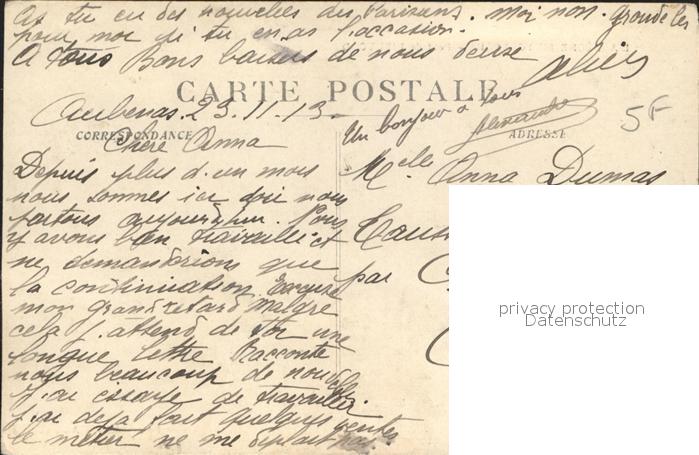 As tu eu des nouvelles des Parisiens. Moi non. Gronde les
pour moi si tu en as l'occasion.
A tous Bons baisers de nous deux
CARTE POSTALE
Aubenas. 23.11.13.
Un bonjour à tous
5F
CORRESPONDANCE
ADRESSE
Chère Anna
Melle Anna Dumas
Depuis plus d'un mois
nous sommes ici d'où nous
partons aujourd'hui. Nous
y avons bien travaillé et
ne demanderions que
par
la continuation. Excuse
mon grand retard malgré
cela j'attend de toi une
longue lettre Raconte
nous beaucoup de nouvelles.
J'ai essayé de travailler
j'ai déjà fait quelques ventes
le métier ne me déplait pas.
privacy protection
Datenschutz